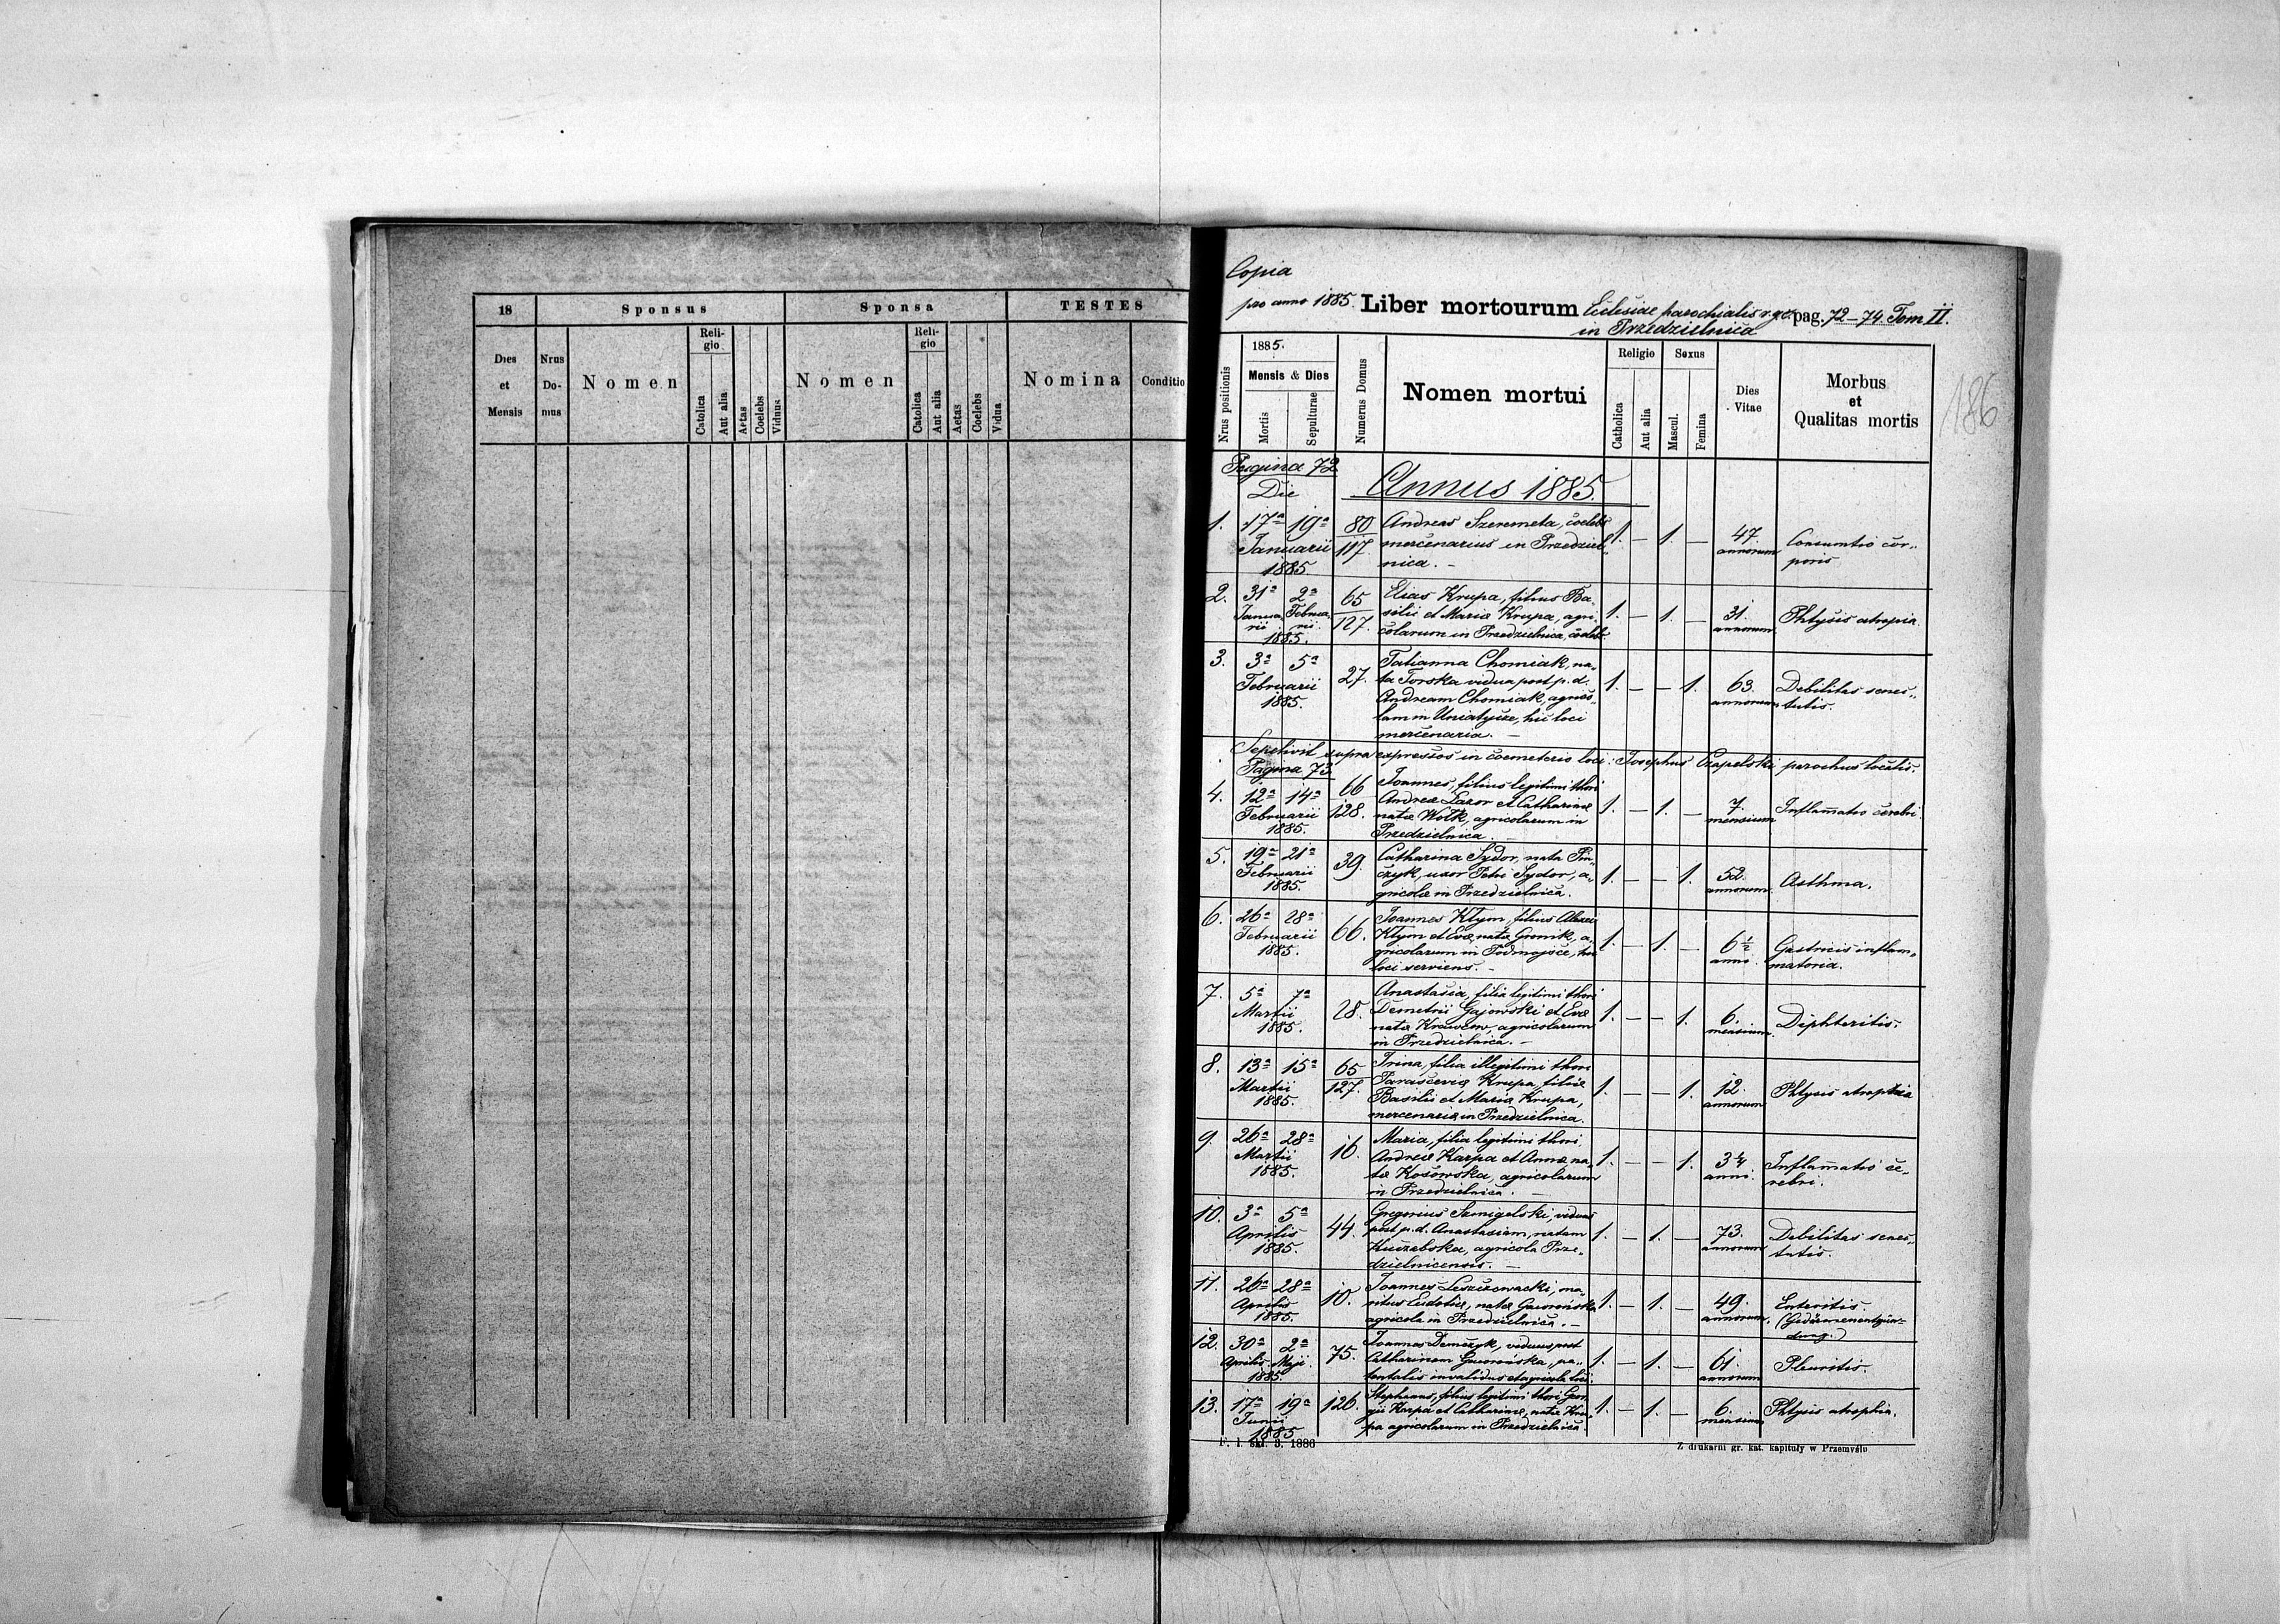 18 Sponsus Sponsa TESTES
Dies et Mensis Nrus Domus Nomen Religio Catolica Aut alia Aetas Coelebs Viduus Nomen Religio Catolica Aut alia Aetas Coelebs Vidua Nomina Conditio
Copia
pro anno 1885. Liber mortourum Ecclesiae parochialis r. g. c. pag. 72–74 Tom II.
in Przedzielnica
186
Nrus positionis 1885. Mensis & Dies Mortis Sepulturae Numerus Domus Nomen mortui Religio Catholica Aut alia Sexus Mascul. Femina Dies Vitae Morbus et Qualitas mortis
Pagina 72
Die Annus 1885.
1. 17a 19a 80 Andreas Szeremeta, coelebs
Januarii 117 mercenarius in Przedziel- 1. – 1. – 47. annorum Consumtio cor-
1885 nica. – poris
2. 31a 2a 65 Elias Krupa, filius Ba-
Januarii Februarii 127. silii et Mariæ Krupa, agri- 1. – 1. – 31. annorum Phtysis atropia.
1885. colarum in Przedzielnica, coelebs.
3. 3a 5a Tatianna Chomiak, na-
Februarii 27. ta Torska vidua post p. d. 1. – – 1. 63. annorum Debilitas senec-
1885. Andream Chomiak, agrico- tutis.
lam in Uniatycze, hic loci
mercenaria. –
Sepelivit supra expressos in coemeterio loci: Josephus Czapelski parochus localis.
Pagina 73
4. 12a 14a 66 Joannes, filius legitimi thori
Februarii 128. Andreæ Lazor et Catharinæ 1. – 1. – 7. mensium Inflamatio cerebri.
1885. natæ Wołk, agricolarum in
Przedzielnica. –
5. 19a 21a 39. Catharina Sydor, nata
Februarii uxor Petri Sydor, a- 1. – – 1. 52. annorum Asthma.
1885. gricolæ in Przedzielnica.
6. 26a 28a Joannes Kłym, filius
Februarii 66. Kłym et Evæ, natæ a- 1. – 1. – 6½ anni. Gastricis inflam-
1885. gricolarum in hic matoria.
loci serviens. –
7. 5a 7a Anastasia, filia legitimi thori
Martii 28. Demetrii Gajowski et Evæ 1. – – 1. 6. mensium. Diphteritis.
1885. natæ Krawców, agricolarum
in Przedzielnica. –
8. 13a 15a 65 Irina, filia illegitimi thori
Martii 127. Parasceviæ Krupa, filiæ 1. – – 1. 12. annorum Phtysis atrophia
1885. Basilii et Mariæ Krupa,
mercenaria in Przedzielnica.
9. 26a 28a Maria, filia legitimi thori
Martii 16. Andreæ Karpa et Annæ na- 1. – – 1. 3¼ anni. Inflamatio ce-
1885. tæ Kosowska, agricolarum rebri.
in Przedzielnica. –
10. 3a 5a Gregorius Szmigelski, viduus
Aprilis 44. post p. d. Anastasiam, natam 1. – 1. – 73. annorum Debilitas senec-
1885. agricola Prze- tutis.
dzielnicensis. –
11. 26a 28a Joannes Leszczowacki, ma-
Aprilis 10. ritus Eudociæ, natæ Gaworńska 1. – 1. – 49. annorum. Enteritis.
1885. agricola in Przedzielnica. – (Gedärmenentzün-
dung.)
12. 30a 2a Joannes Demczyk, viduus post
Aprilis Maji. 75. Catharinam pa- 1. – 1. – 61. annorum Pleuritis.
1885. tentalis invalidus et agricola loci.
13. 17a 19a 126. Stephanus, filius legitimi thori Geor-
Junii gii Karpa et Catharinæ, natæ Kru- 1. – 1. – 6. mensium Phtysis atrophia.
1885 pa agricolarum in Przedzielnica.
F. I. skł. 3. 1886 Z drukarni gr. kat. kapituły w Przemyślu